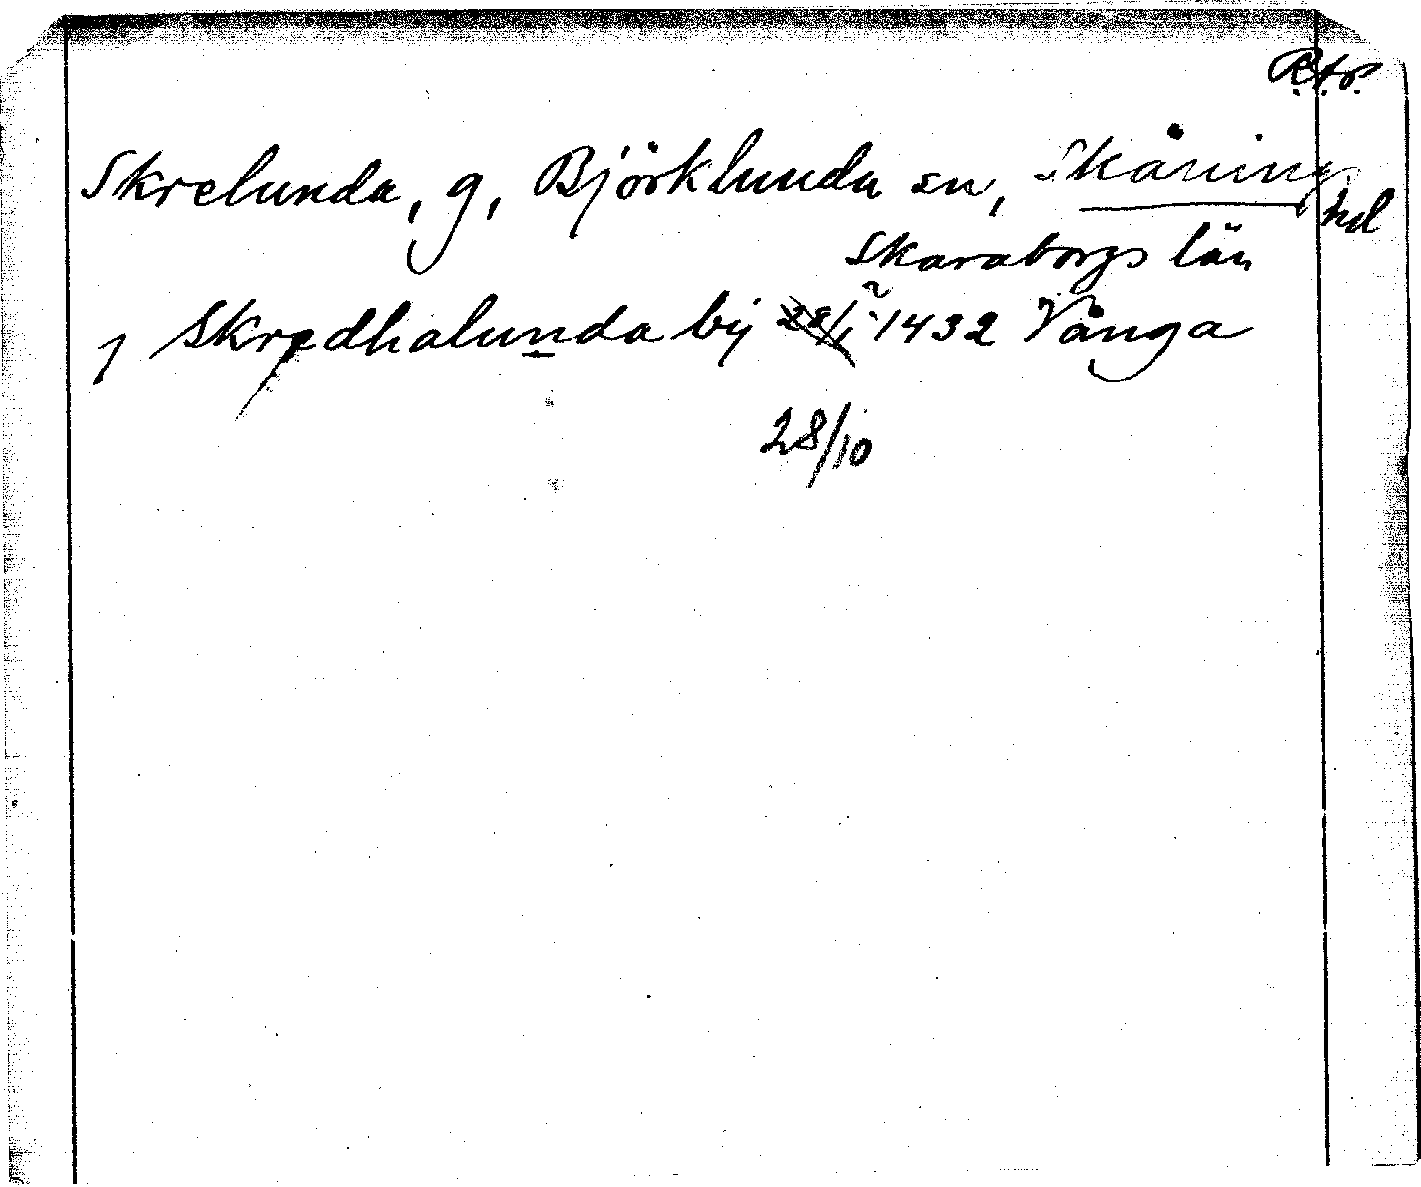 R.t.p.
Skrelunda, g, Björklunda sn, Skåning hd
Skaraborgs län
J Skredhalunda by 28/1 1432 Vånga
28/10